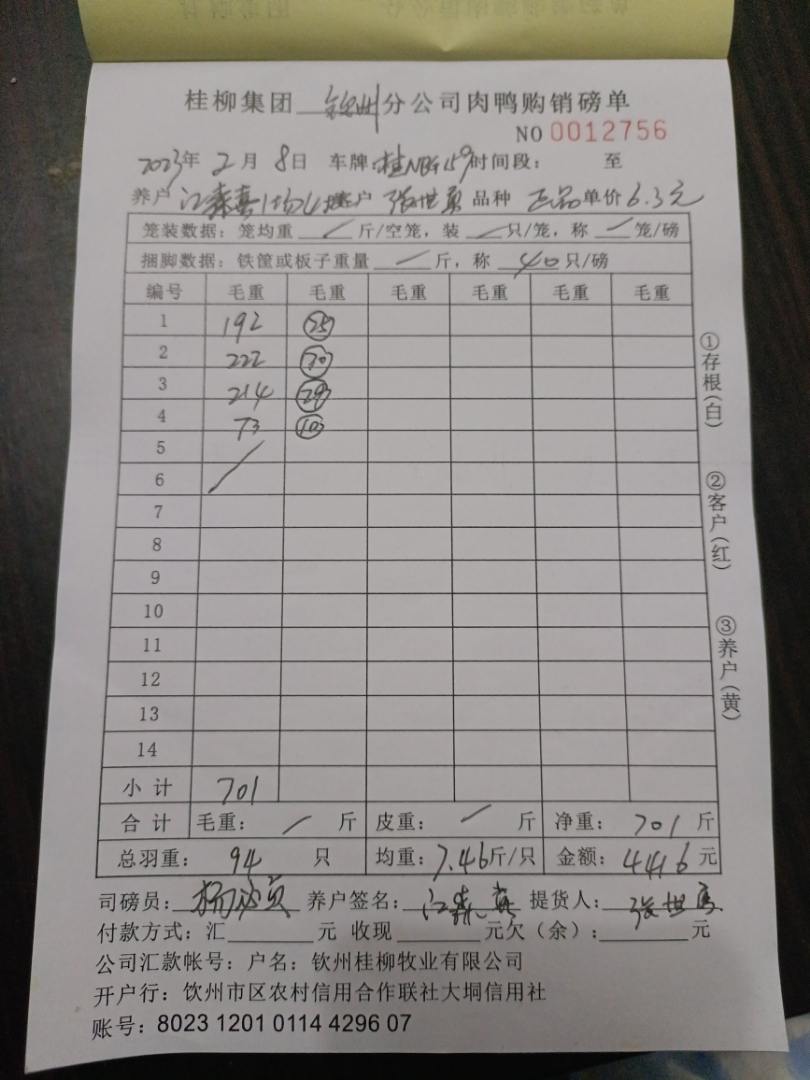 桂柳集团 钦州 分公司肉鸭购销磅单
NO 0012756
2023年 2月 8日 车牌: 时间段: 至
养户 江森喜 客户 张世勇 品种 正品 单价 6.3元
笼装数据: 笼均重 / 斤/空笼, 装 / 只/笼, 称 / 笼/磅
捆脚数据: 铁筐或板子重量 / 斤, 称 40 只/磅
编号 毛重 毛重 毛重 毛重 毛重 毛重
1 192 25
2 222 30
3 214 29
4 73 10
5
6
7
8
9
10
11
12
13
14
小计 701
合计 毛重: / 斤 皮重: / 斤 净重: 701 斤
总羽重: 94 只 均重: 7.46斤/只 金额: 4416 元
司磅员: 养户签名: 江森喜 提货人: 张世勇
付款方式: 汇 元 收现 元欠(余): 元
公司汇款帐号: 户名: 钦州桂柳牧业有限公司
开户行: 饮州市区农村信用合作联社大垌信用社
账号: 8023 1201 0114 4296 07
①存根(白)
②客户(红)
③养户(黄)